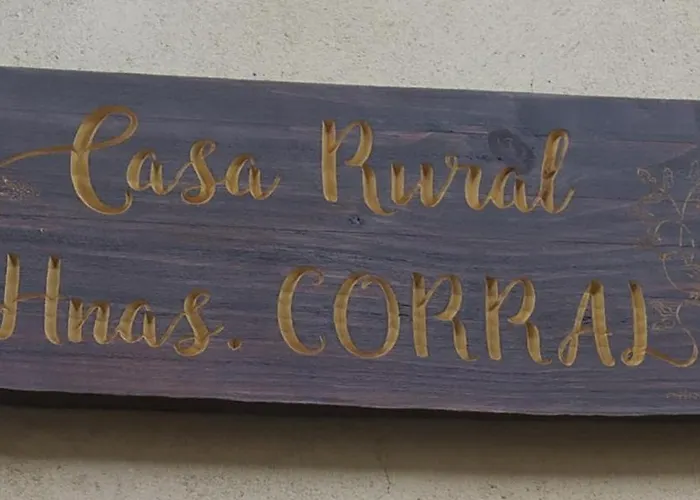 Casa Rural
Hnas. CORRAL